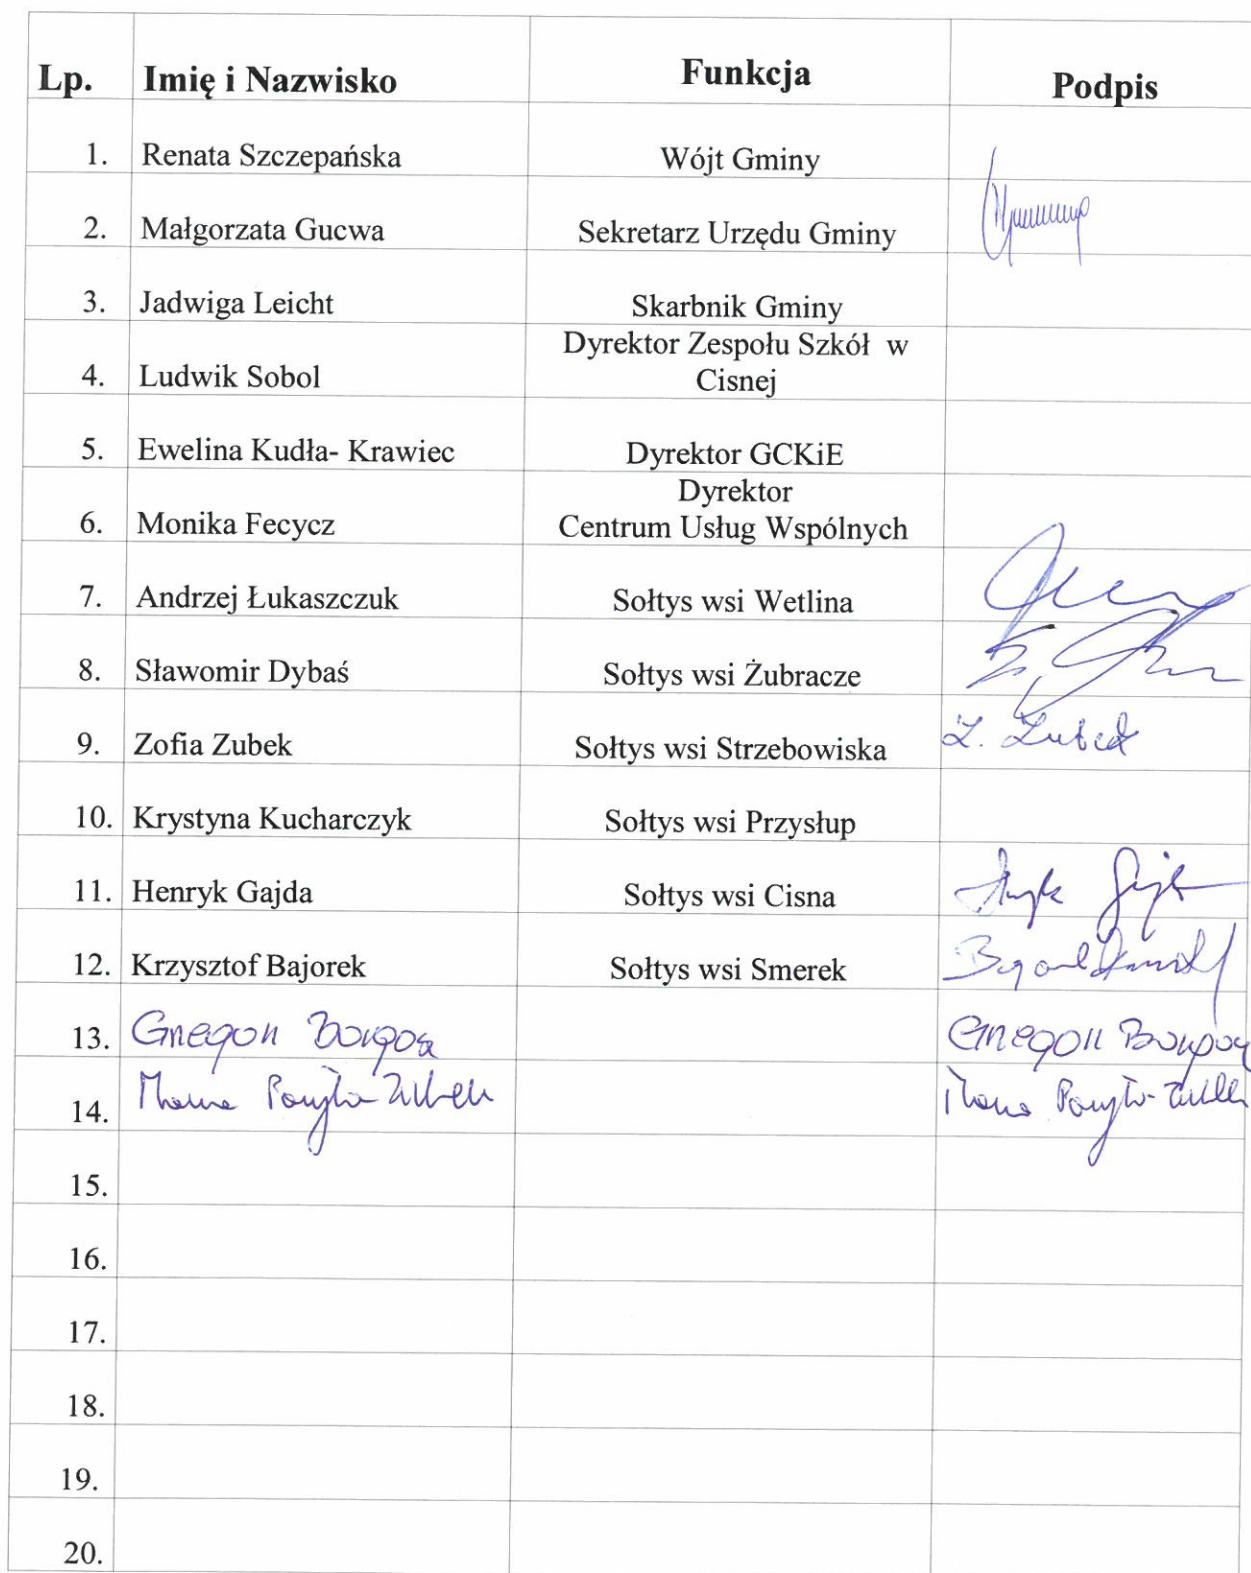 Lp. Imię i Nazwisko Funkcja Podpis
1. Renata Szczepańska Wójt Gminy
2. Małgorzata Gucwa Sekretarz Urzędu Gminy
3. Jadwiga Leicht Skarbnik Gminy
Dyrektor Zespołu Szkół w
4. Ludwik Sobol Cisnej
5. Ewelina Kudła- Krawiec Dyrektor GCKiE
Dyrektor
6. Monika Fecycz Centrum Usług Wspólnych
7. Andrzej Łukaszczuk Sołtys wsi Wetlina
8. Sławomir Dybaś Sołtys wsi Żubracze
9. Zofia Zubek Sołtys wsi Strzebowiska Z. Zubek
10. Krystyna Kucharczyk Sołtys wsi Przysłup
11. Henryk Gajda Sołtys wsi Cisna
12. Krzysztof Bajorek Sołtys wsi Smerek
13.
14.
15.
16.
17.
18.
19.
20.